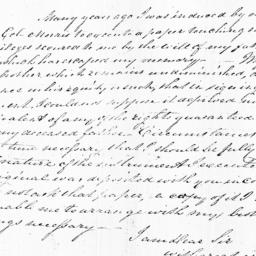 Many years ago I was induced by
Col. Morris to execute a paper touching
secured to me by the will of my
which has escaped my memory.
brother which remains undiminished,
in his equity & unity, that in signing
I could not suppose it deprived
of any of the rights guaranteed
my deceased father. Circumstances
time necessary that I should be fully
nature of the instrument I executed
original was deposited with you
not ask that paper, a copy of it I
enable me to arrange with my
necessary —
I am dear Sir
with great